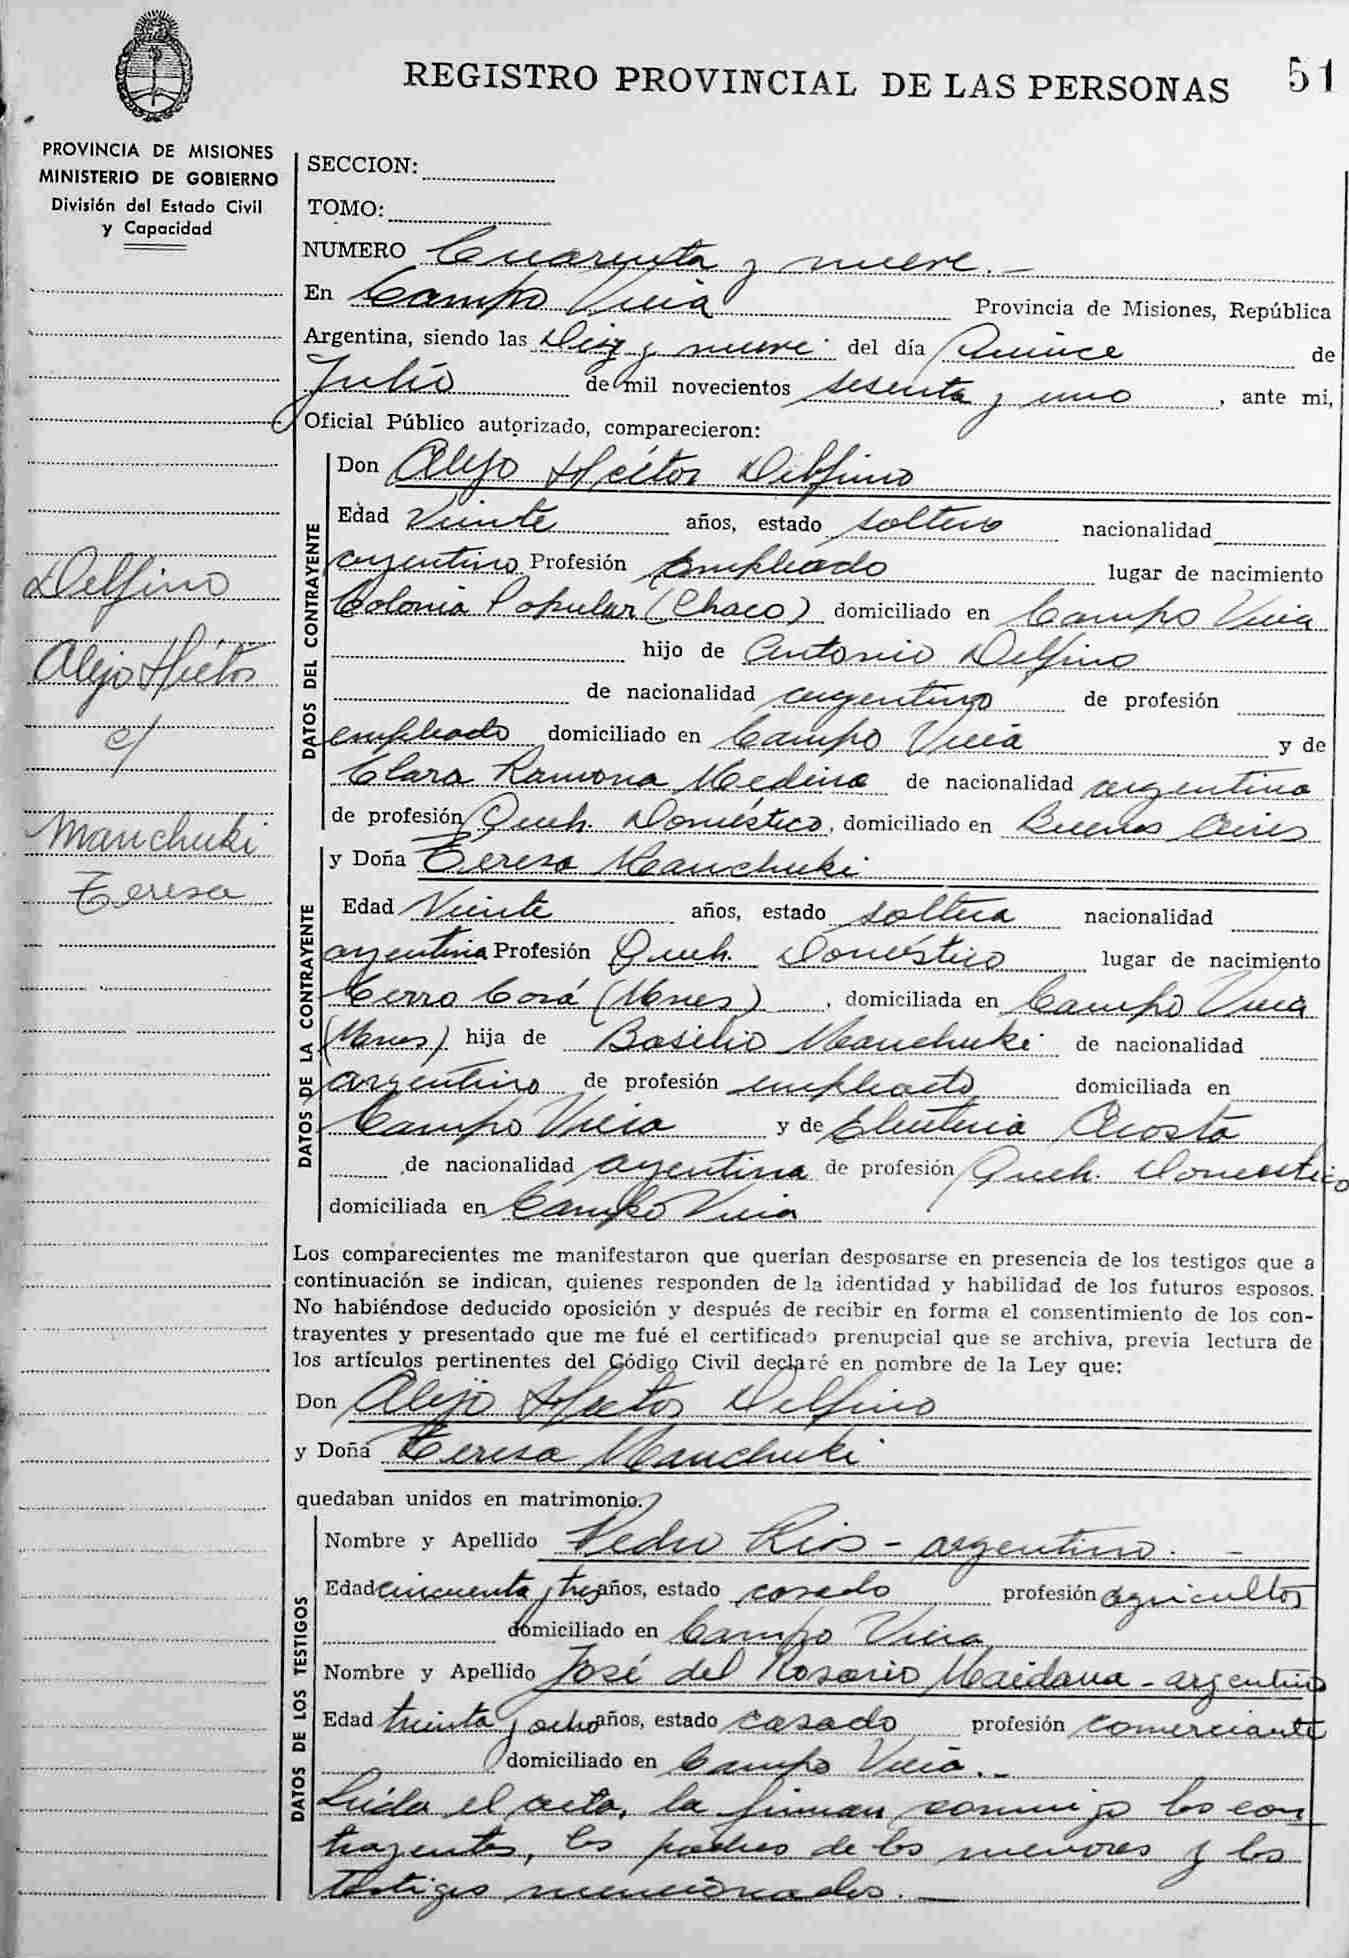 REGISTRO PROVINCIAL DE LAS PERSONAS 51
PROVINCIA DE MISIONES
MINISTERIO DE GOBIERNO
División del Estado Civil
y Capacidad
SECCION:
TOMO:
NUMERO Cuarenta y nueve.-
En Campo Viera Provincia de Misiones, República
Argentina, siendo las Diez y nueve del día Quince de
Julio de mil novecientos sesenta y uno, ante mi,
Oficial Público autorizado, comparecieron:
DATOS DEL CONTRAYENTE
Don Alejo Héctor Delfino
Edad Veinte años, estado soltero nacionalidad
argentino Profesión Empleado lugar de nacimiento
Colonia Popular (Chaco) domiciliado en Campo Viera
hijo de Antonio Delfino
de nacionalidad argentino de profesión
empleado domiciliado en Campo Viera y de
Clara Ramona Medina de nacionalidad argentina
de profesión Queh. Doméstico, domiciliado en Buenos Aires
Delfino
Alejo Héctor
c/
Manchuki
Teresa
DATOS DE LA CONTRAYENTE
y Doña Teresa Manchuki
Edad Veinte años, estado soltera nacionalidad
argentina Profesión Queh. Doméstico lugar de nacimiento
Cerro Corá (Mnes), domiciliada en Campo Viera
(Mnes) hija de Basilio Manchuki de nacionalidad
argentino de profesión empleado domiciliada en
Campo Viera y de Eleuteria Acosta
de nacionalidad argentina de profesión Queh. Domestico
domiciliada en Campo Viera
Los comparecientes me manifestaron que querían desposarse en presencia de los testigos que a
continuación se indican, quienes responden de la identidad y habilidad de los futuros esposos.
No habiéndose deducido oposición y después de recibir en forma el consentimiento de los con-
trayentes y presentado que me fué el certificado prenupcial que se archiva, previa lectura de
los artículos pertinentes del Código Civil declaré en nombre de la Ley que:
Don Alejo Hector Delfino
y Doña Teresa Manchuki
quedaban unidos en matrimonio.
DATOS DE LOS TESTIGOS
Nombre y Apellido Pedro Rios - argentino. -
Edad cincuenta y tres años, estado casado profesión agricultor
domiciliado en Campo Viera
Nombre y Apellido José del Rosario Maidana - argentino
Edad treinta y ocho años, estado casado profesión comerciante
domiciliado en Campo Viera.-
Leída el acta, la firman conmigo los con
trayentes, los padres de los menores y los
testigos mencionados.-